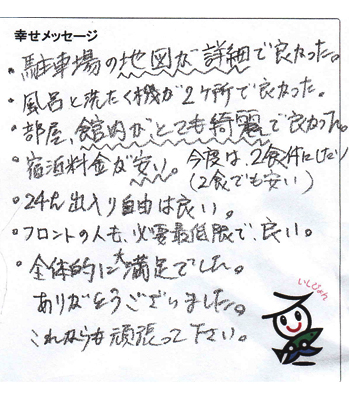 幸せメッセージ
・駐車場の地図が詳細で良かった。
・風呂と洗たく機が2ヶ所で良かった。
・部屋、館内がとても綺麗で良かった。
・宿泊料金が安い。今度は、2食付にしたい
(2食でも安い)
・24h出入り自由は良い。
・フロントの人も、必要最低限で、良い。
・全体的に大満足でした。
ありがとうございました。
これからも頑張って下さい。